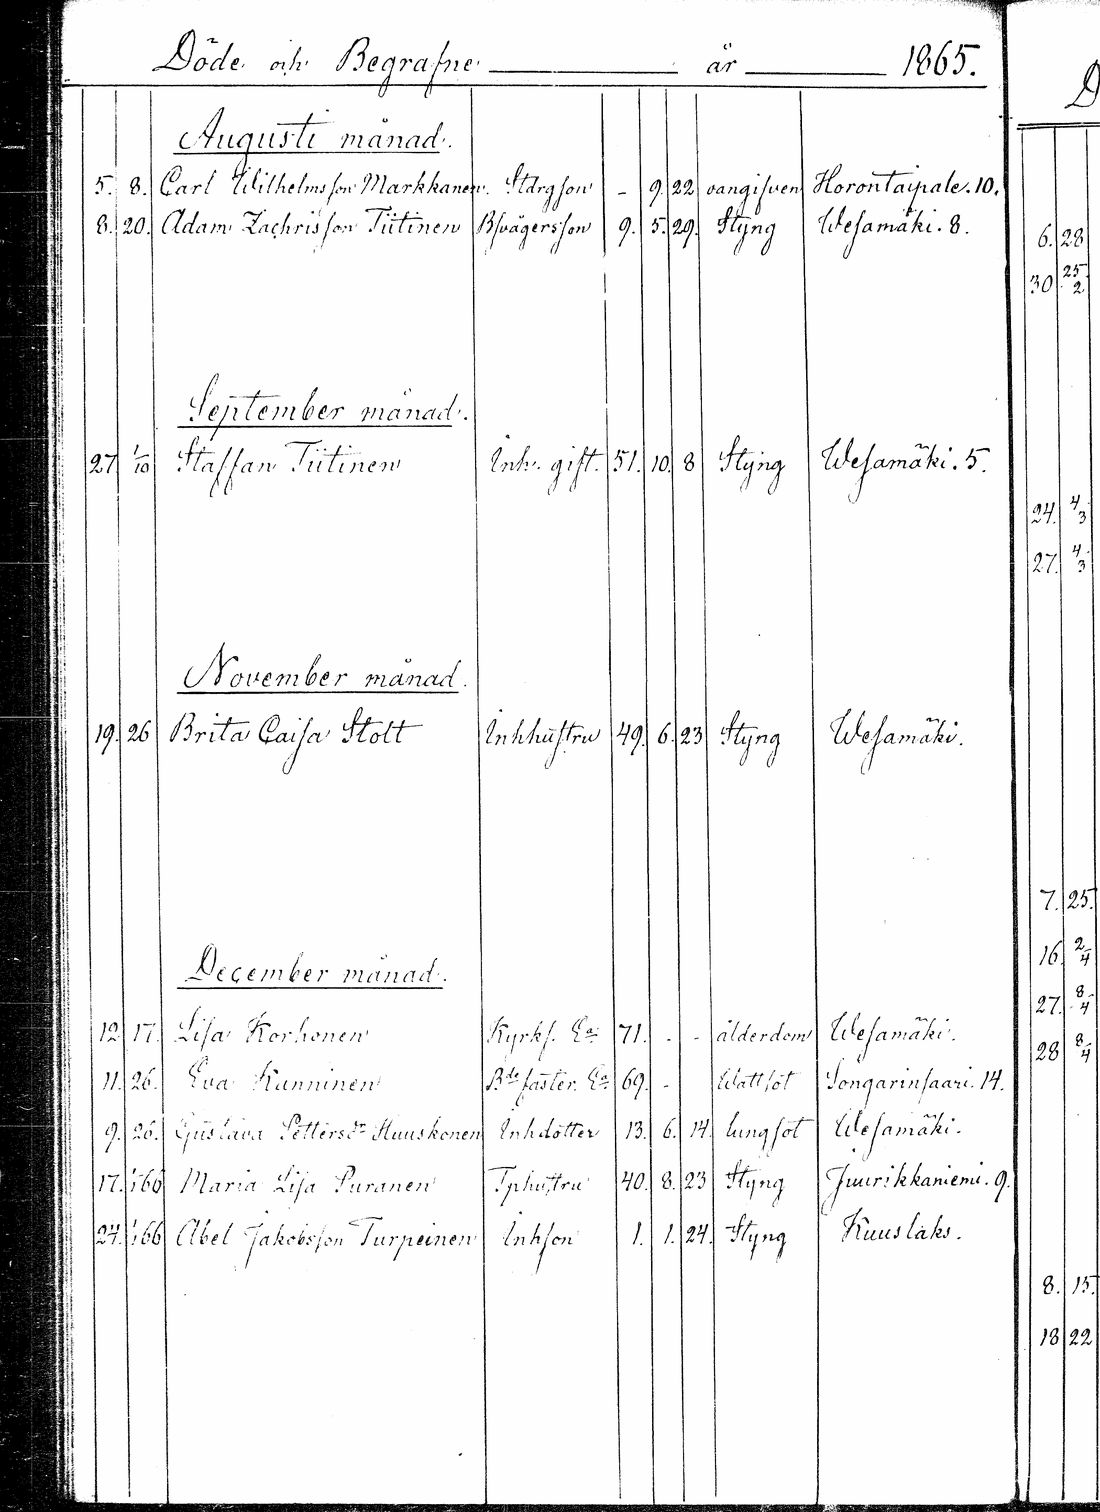 Döde och Begrafne år 1865.
Augusti månad.
5. 8. Carl Wilhelmsson Markkanen. Stdrgson - 9. 22 oangifven Horontaipale. 10.
8. 20. Adam Zachrisson Tiitinen Bsvågersson 9. 5. 29. Styng Wesamäki. 8.
September månad.
27 1/10 Staffan Tiitinen Inh. gift. 51. 10. 8 Styng Wesamäki. 5.
November månad.
19. 26 Brita Caisa Stolt Inhhustru 49. 6. 23 Styng Wesamäki.
December månad.
12 17. Lisa Korhonen Kyrks. Ea 71. - - ålderdom Wesamäki.
11. 26. Eva Kunninen Bde faster. Ea 69. - Wattsot Songarinsaari. 14.
9. 26. Gustava Pettersdr Huuskonen Inhdotter 13. 6. 14. lungsot Wesamäki.
17. 1/1 66 Maria Lisa Puranen Tphustru 40. 8. 23 Styng Juurikkaniemi. 9.
24. 1/1 66 Abel Jakobsson Turpeinen Inhson 1. 1. 24. Styng Kuuslaks.
D
6. 28
30 25/2
24. 4/3
27. 4/3
7. 25.
16. 2/4
27. 8/4
28 8/4
8. 15.
18 22